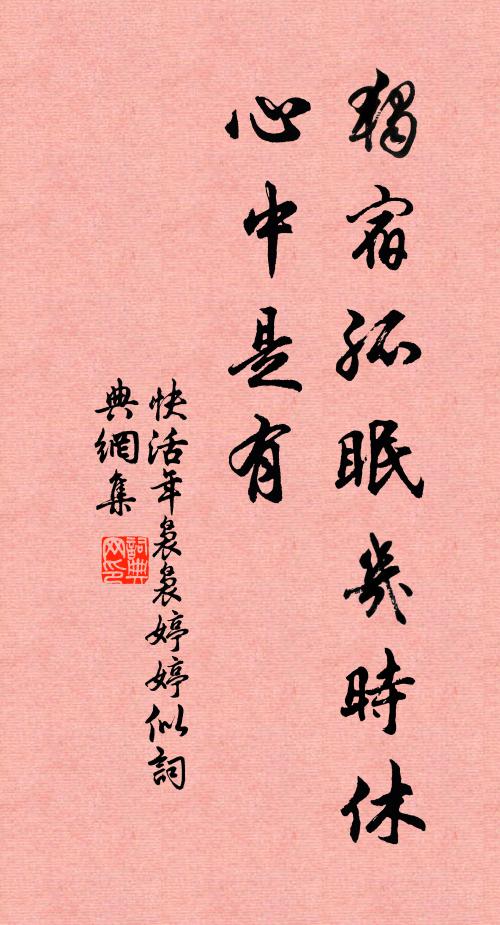 獨宿孤眠幾時休
心中是有
快活年裊裊婷婷似詞
典網集
詞典
网印